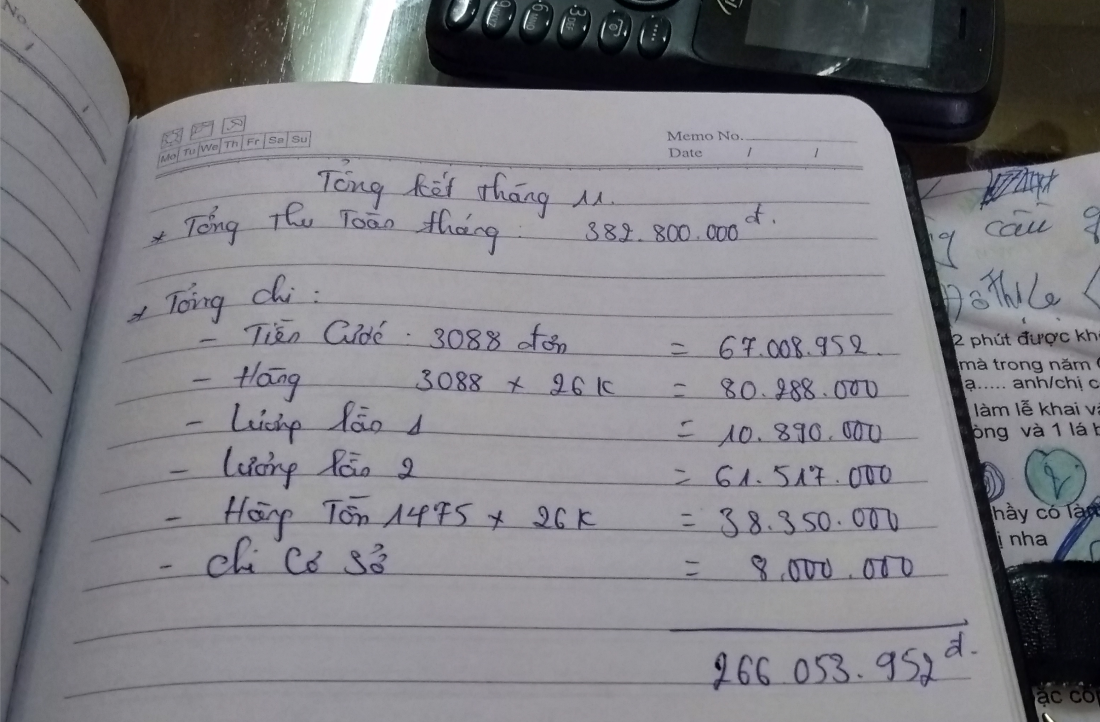 No.
Mo Tu We Th Fr Sa Su
Memo No.
Date / /
Tổng kết tháng 11.
* Tổng Thu Toàn tháng: 382.800.000đ.
* Tổng chi:
- Tiền Cước: 3088 đơn = 67.008.952.
- Hàng 3088 x 26K = 80.288.000
- Lương lần 1 = 10.890.000
- Lương lần 2 = 61.517.000
- Hàng Tồn 1475 x 26K = 38.350.000
- Chi Cơ Sở = 8.000.000
266.053.952đ.
câu
2 phút được kh
mà trong năm
a..... anh/chị c
làm lễ khai v
òng và 1 lá b
hầy có làm
ị nha
ặc cô